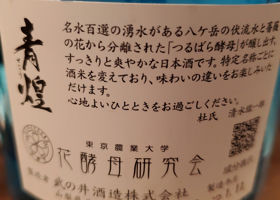 青煌
名水百選の湧水がある八ケ岳の伏流水と薔薇
の花から分離された「つるばら酵母」が醸し出す、
すっきりと爽やかな日本酒です。特定名称ごとに
酒米を変えており、味わいの違いをお楽しみいた
だけます。
心地よいひとときをお過ごしください。
杜氏 清水紘一郎
東京農業大学
花酵母研究会
武の井酒造株式会社